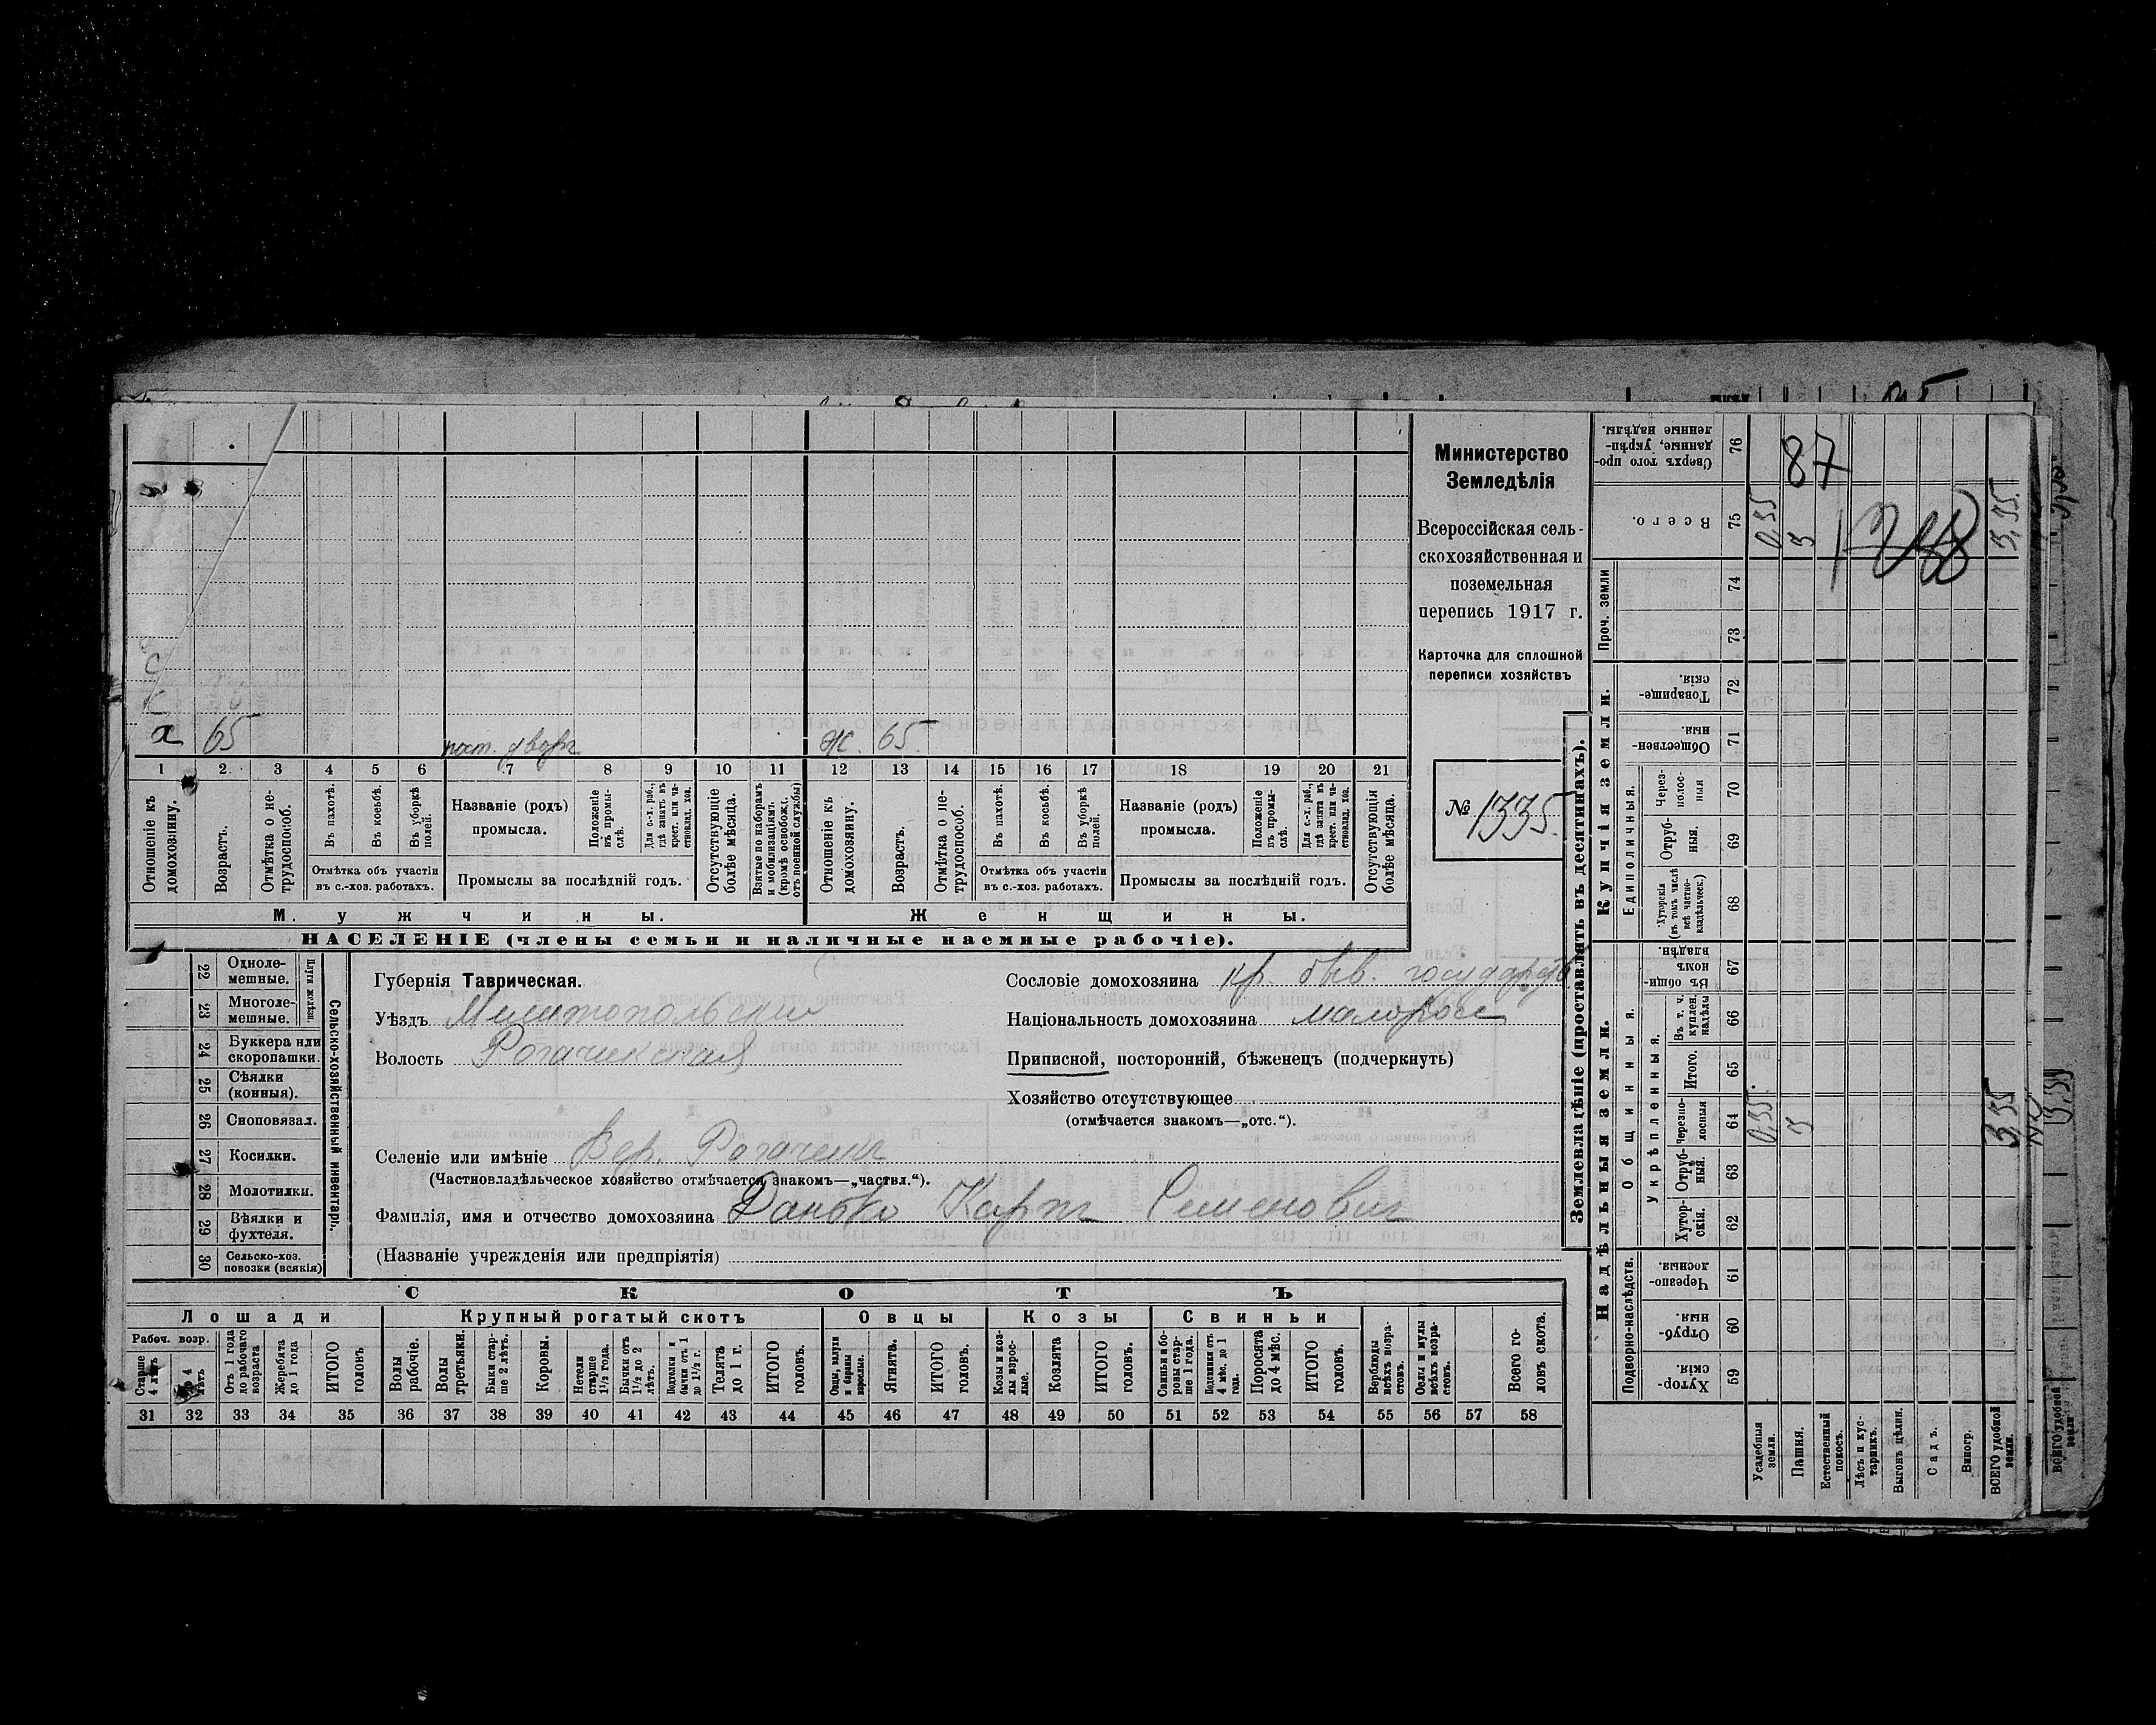 а 65 пост. дворъ Ж. 65.
1 2 3 4 5 6 7 8 9 10 11 12 13 14 15 16 17 18 19 20 21
Отношеніе къ домохозяину.
Возрастъ.
Отмѣтка о нетрудоспособ.
Въ пахотѣ.
Въ косьбѣ.
Въ уборкѣ полей.
Отмѣтка объ участіи въ с.-хоз. работахъ.
Названіе (родъ) промысла.
Положеніе въ промыслѣ.
Для с.-х. раб., гдѣ занятъ въ крест. или частновлад. хоз.
Промыслы за послѣдній годъ.
Отсутствующіе болѣе мѣсяца.
Взятые по наборамъ и мобилизаціямъ (кромѣ освобожд. отъ военной службы)
Отношеніе къ домохозяину.
Возрастъ.
Отмѣтка о нетрудоспособ.
Въ пахотѣ.
Въ косьбѣ.
Въ уборкѣ полей.
Отмѣтка объ участіи въ с.-хоз. работахъ.
Названіе (родъ) промысла.
Положеніе въ промыслѣ.
Для с.-х. раб., гдѣ занята въ крест. или частновлад. хоз.
Промыслы за послѣдній годъ.
Отсутствующія болѣе мѣсяца.
Мужчины.
Женщины.
НАСЕЛЕНІЕ (члены семьи и наличные наемные рабочіе).
Министерство
Земледѣлія
Всероссійская сель-
скохозяйственная и
поземельная
перепись 1917 г.
Карточка для сплошной
переписи хозяйствъ
№ 1335.
22 Однолемешные.
23 Многолемешные.
Плуги желѣзн.
24 Буккера или скоропашки.
25 Сѣялки (конныя).
26 Сноповязал.
27 Косилки.
28 Молотилки.
29 Вѣялки и фухтеля.
30 Сельско-хоз. повозки (всякія)
Сельско-хозяйственный инвентарь.
Губернія Таврическая.
Уѣздъ Мелитопольский
Волость Рогачикская
Селеніе или имѣніе Вер. Рогачикъ
(Частновладѣльческое хозяйство отмѣчается знакомъ—„частвл.“).
Фамилія, имя и отчество домохозяина Данько Карпъ Семенович
(Названіе учрежденія или предпріятія)
Сословіе домохозяина кр. быв. государств
Національность домохозяина малоросс
Приписной, посторонній, бѣженецъ (подчеркнуть)
Хозяйство отсутствующее
(отмѣчается знакомъ—„отс.“).
СКОТЪ
Лошади
Рабоч. возр.
Старше 4 лѣтъ
До 4 лѣтъ
Отъ 1 года до рабочаго возраста
Жеребята до 1 года
ИТОГО головъ
Крупный рогатый скотъ
Волы рабочіе.
Волы третьяки.
Быки старше 2 лѣтъ.
Коровы.
Нетели старше 1½ года.
Бычки отъ 1½ до 2 лѣтъ.
Подтелки и бычки отъ 1 до 1½ г.
Телята до 1 г.
ИТОГО головъ.
Овцы
Овцы, валухи и бараны взрослые.
Ягнята.
ИТОГО головъ.
Козы
Козы и козлы взрослые.
Козлята
ИТОГО головъ.
Свиньи
Свиньи и боровы старше 1 года.
Подсвинки отъ 4 мѣс. до 1 года.
Поросята до 4 мѣс.
ИТОГО головъ.
Верблюды всѣхъ возрастовъ.
Ослы и мулы всѣхъ возрастовъ.
Всего головъ скота.
31 32 33 34 35 36 37 38 39 40 41 42 43 44 45 46 47 48 49 50 51 52 53 54 55 56 57 58
Землевладѣніе (проставлять въ десятинахъ).
Надѣльныя земли.
Подворно-наслѣдств.
Хуторскія 59
Отрубныя 60
Черезполосныя 61
Общинныя.
Укрѣпленныя.
Хуторскія. 62
Отрубныя. 63
Черезполосныя 64 0,35. 3 3,35
Итого. 65
Въ т. ч. куплен. надѣлы 66
Въ общинномъ владѣн. 67
Купчія земли.
Единоличныя.
Хуторскія (въ томъ числѣ всѣ частновладѣльческ.) 68
Отрубныя. 69
Черезполосныя 70
Общественныя. 71
Товарищескія. 72
Проч. земли 73 74
Всего. 75 0,35 3 3,35.
Сверхъ того проданные, укрѣпленные надѣлы. 76
87
Усадебныя земли.
Пашня.
Естественный покосъ.
Лѣсъ и кустарникъ.
Выгонъ цѣлин.
Садъ.
Виногр.
ВСЕГО удобной земли.
ВСЕГО удобной земли